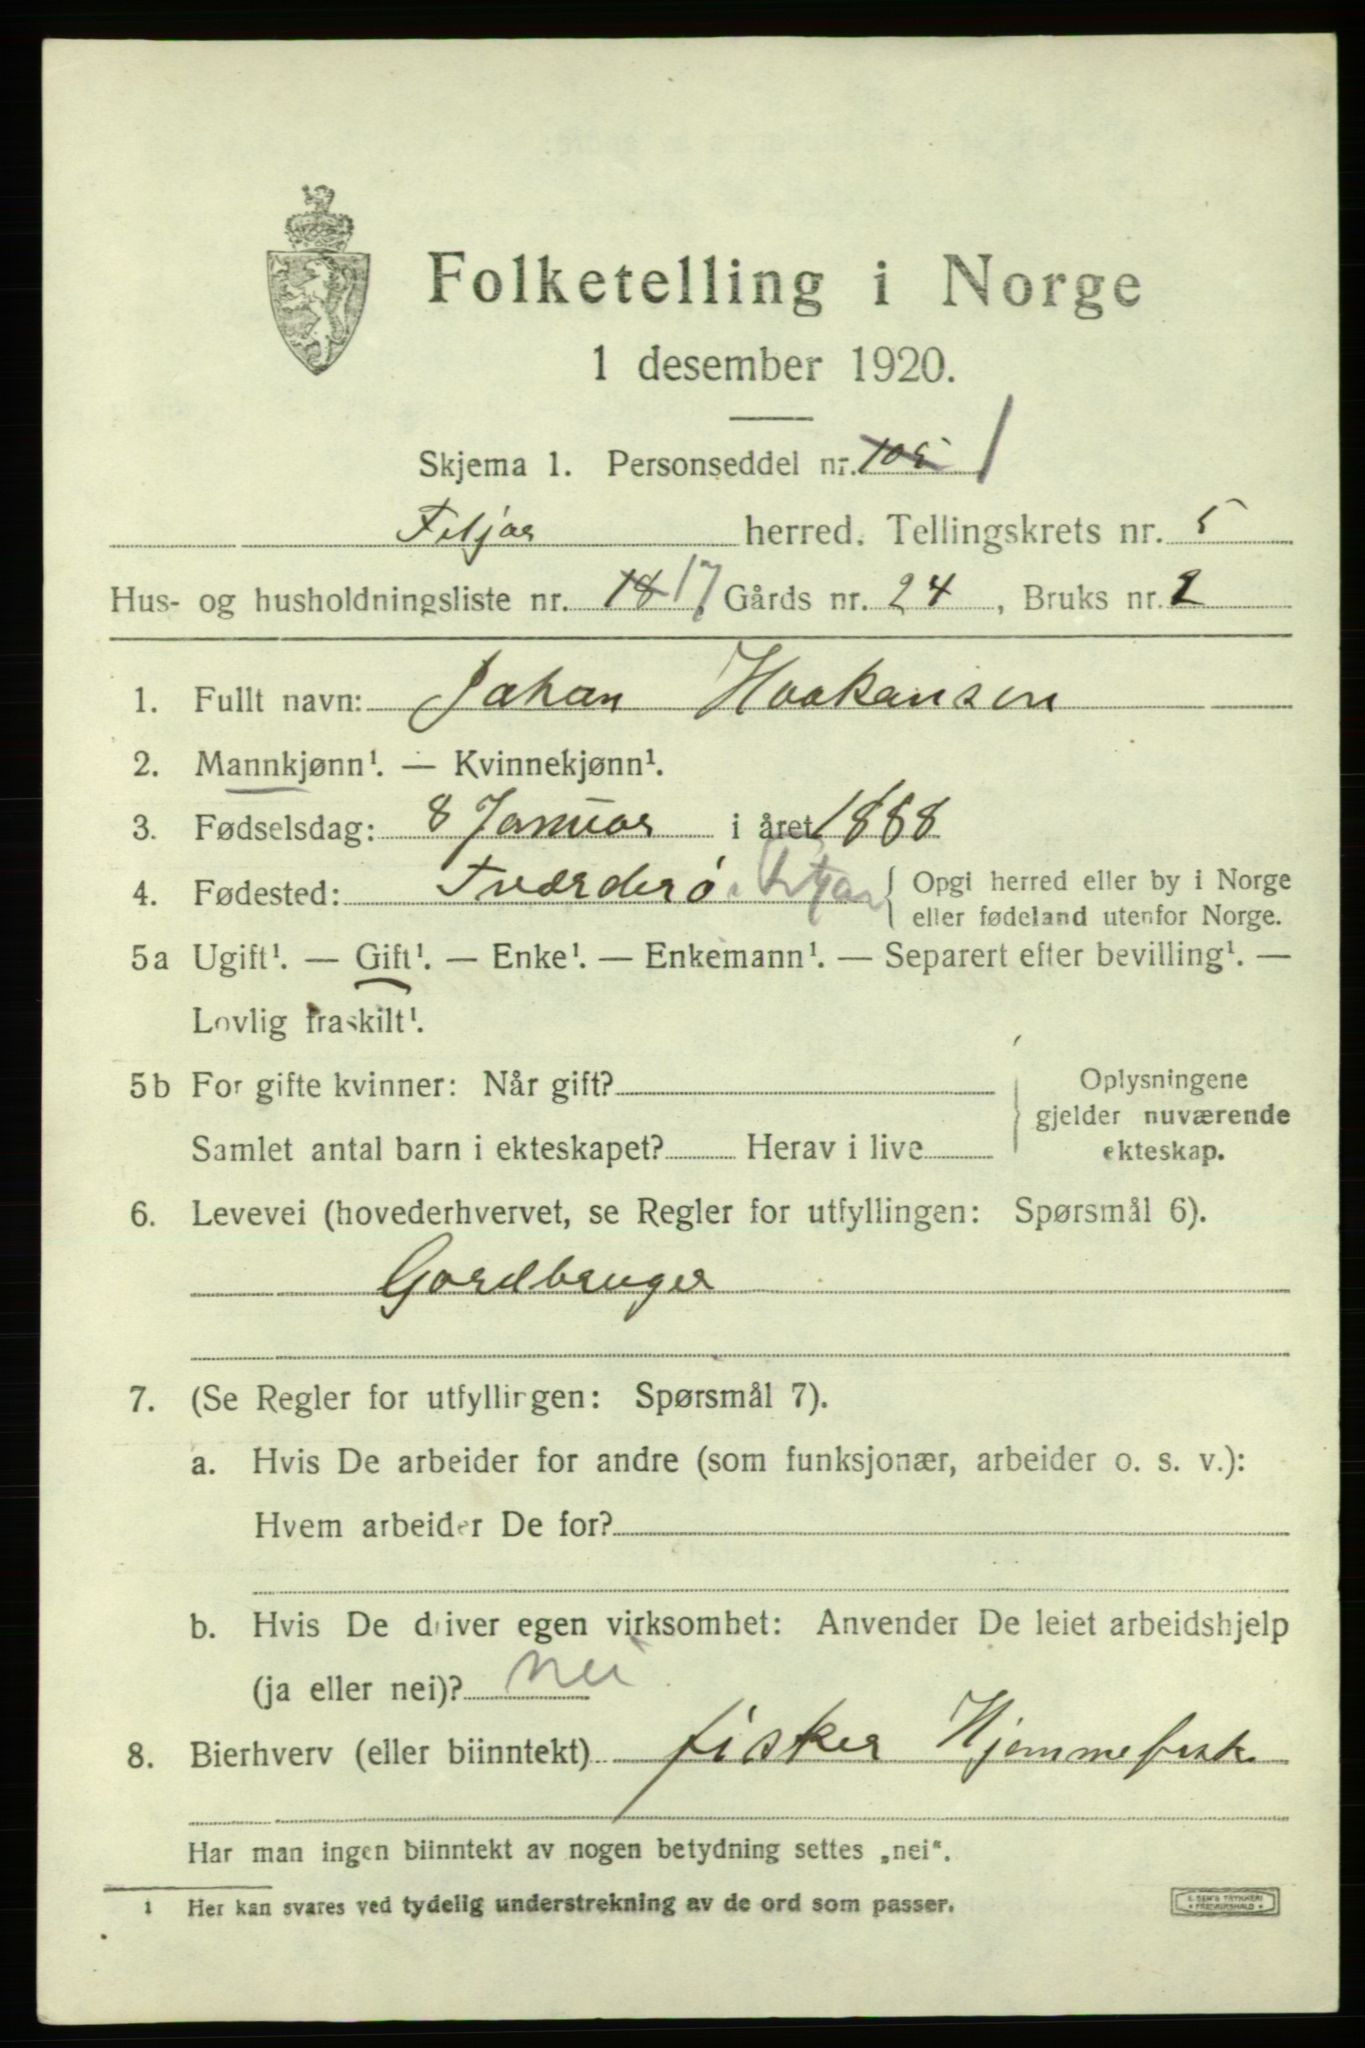 Folketelling i Norge
1 desember 1920.
Skjema 1. Personseddel nr. 105 1
Fitjar herred. Tellingskrets nr. 5
Hus- og husholdningsliste nr. 18 17 Gårds nr. 24, Bruks nr. 2
1. Fullt navn: Johan Haakansen
2. Mannkjønn¹. — Kvinnekjønn¹.
3. Fødselsdag: 8 Januar i året 1888
4. Fødested: Tværderø Fitjar { Opgi herred eller by i Norge
eller fødeland utenfor Norge.
5a Ugift¹. — Gift¹. — Enke¹. — Enkemann¹. — Separert efter bevilling¹. —
Lovlig fraskilt¹.
5b For gifte kvinner: Når gift? Oplysningene
gjelder nuværende
Samlet antal barn i ekteskapet? Herav i live ekteskap.
6. Levevei (hovederhvervet, se Regler for utfyllingen: Spørsmål 6).
Gardbruger
7. (Se Regler for utfyllingen: Spørsmål 7).
a. Hvis De arbeider for andre (som funksjonær, arbeider o. s. v.):
Hvem arbeider De for?
b. Hvis De driver egen virksomhet: Anvender De leiet arbeidshjelp
(ja eller nei)? nei
8. Bierhverv (eller biinntekt) fisker Hjemmefisk
Har man ingen biinntekt av nogen betydning settes „nei“.
1 Her kan svares ved tydelig understrekning av de ord som passer.